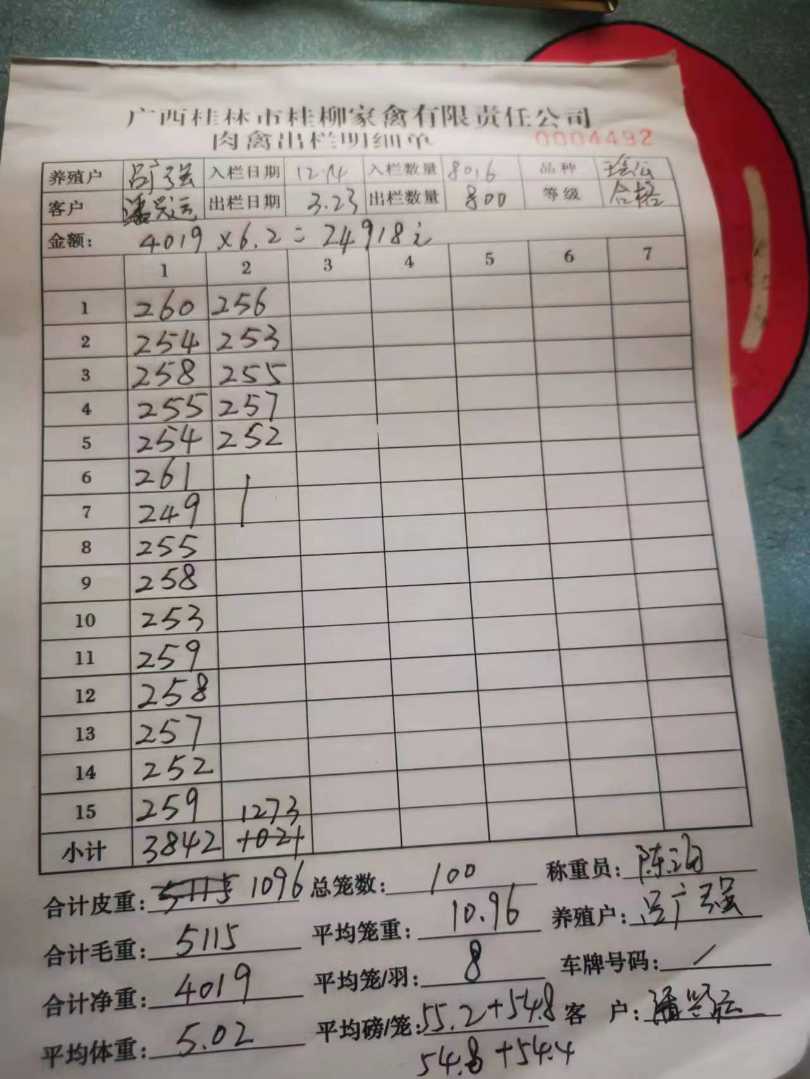 广西桂林市桂柳家禽有限责任公司
肉禽出栏明细单 0004492
养殖户 吕广强 入栏日期 12.14 入栏数量 8016 品种
客户 潘兴运 出栏日期 3.23 出栏数量 800 等级 合格
金额: 4019×6.2=24918
1 2 3 4 5 6 7
1 260 256
2 254 253
3 258 255
4 255 257
5 254 252
6 261
7 249
8 255
9 258
10 253
11 259
12 258
13 257
14 252
15 259 1273
小计 3842
合计皮重: 5115 1096 总笼数: 100 称重员: 陈
合计毛重: 5115 平均笼重: 10.96 养殖户: 吕广强
合计净重: 4019 平均笼/羽: 8 车牌号码: /
平均体重: 5.02 平均磅/笼: 55.2+54.8 客 户: 潘兴运
54.8+54.4